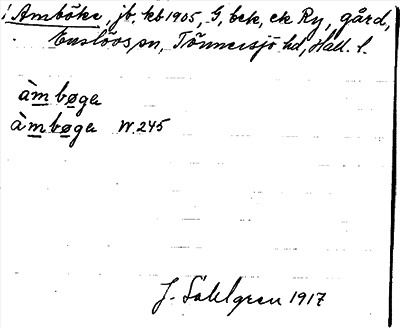 ! Amböke, jb. kb 1905, G, bek, ek Ry, gård,
Enslövs sn, Tönnersjö hd, Hall. l.
àmbøga
àmbøga W. 245
J. Sahlgren 1917